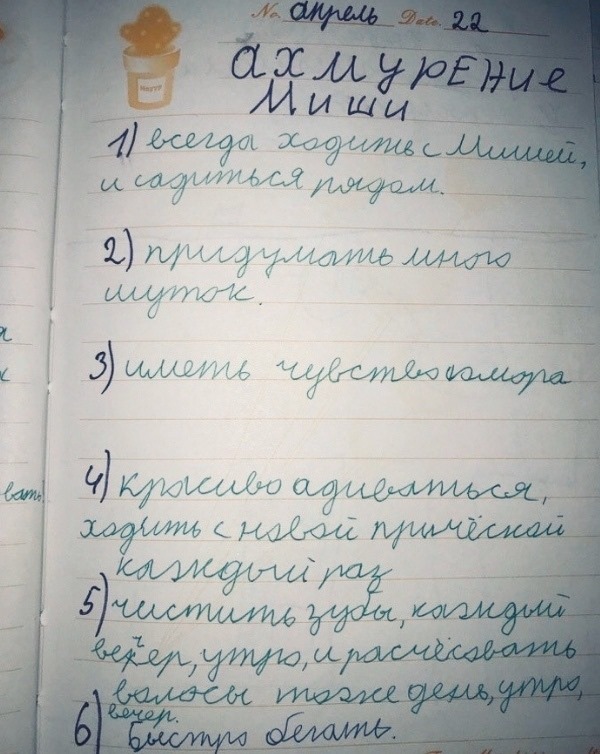 No. апрель Date. 22
АХМУРЕНИЕ
Миши
1) всегда ходить с Мишей,
и садиться рядом.
2) придумать много
шуток.
3) иметь чувство юмора
4) красиво адиваться,
ходить с новой причёской
каждый раз
5) чистить зубы, каждый
вечер, утро, и расчёсовать
волосы тоже день, утро,
вечер.
6) Быстро бегать.
вать